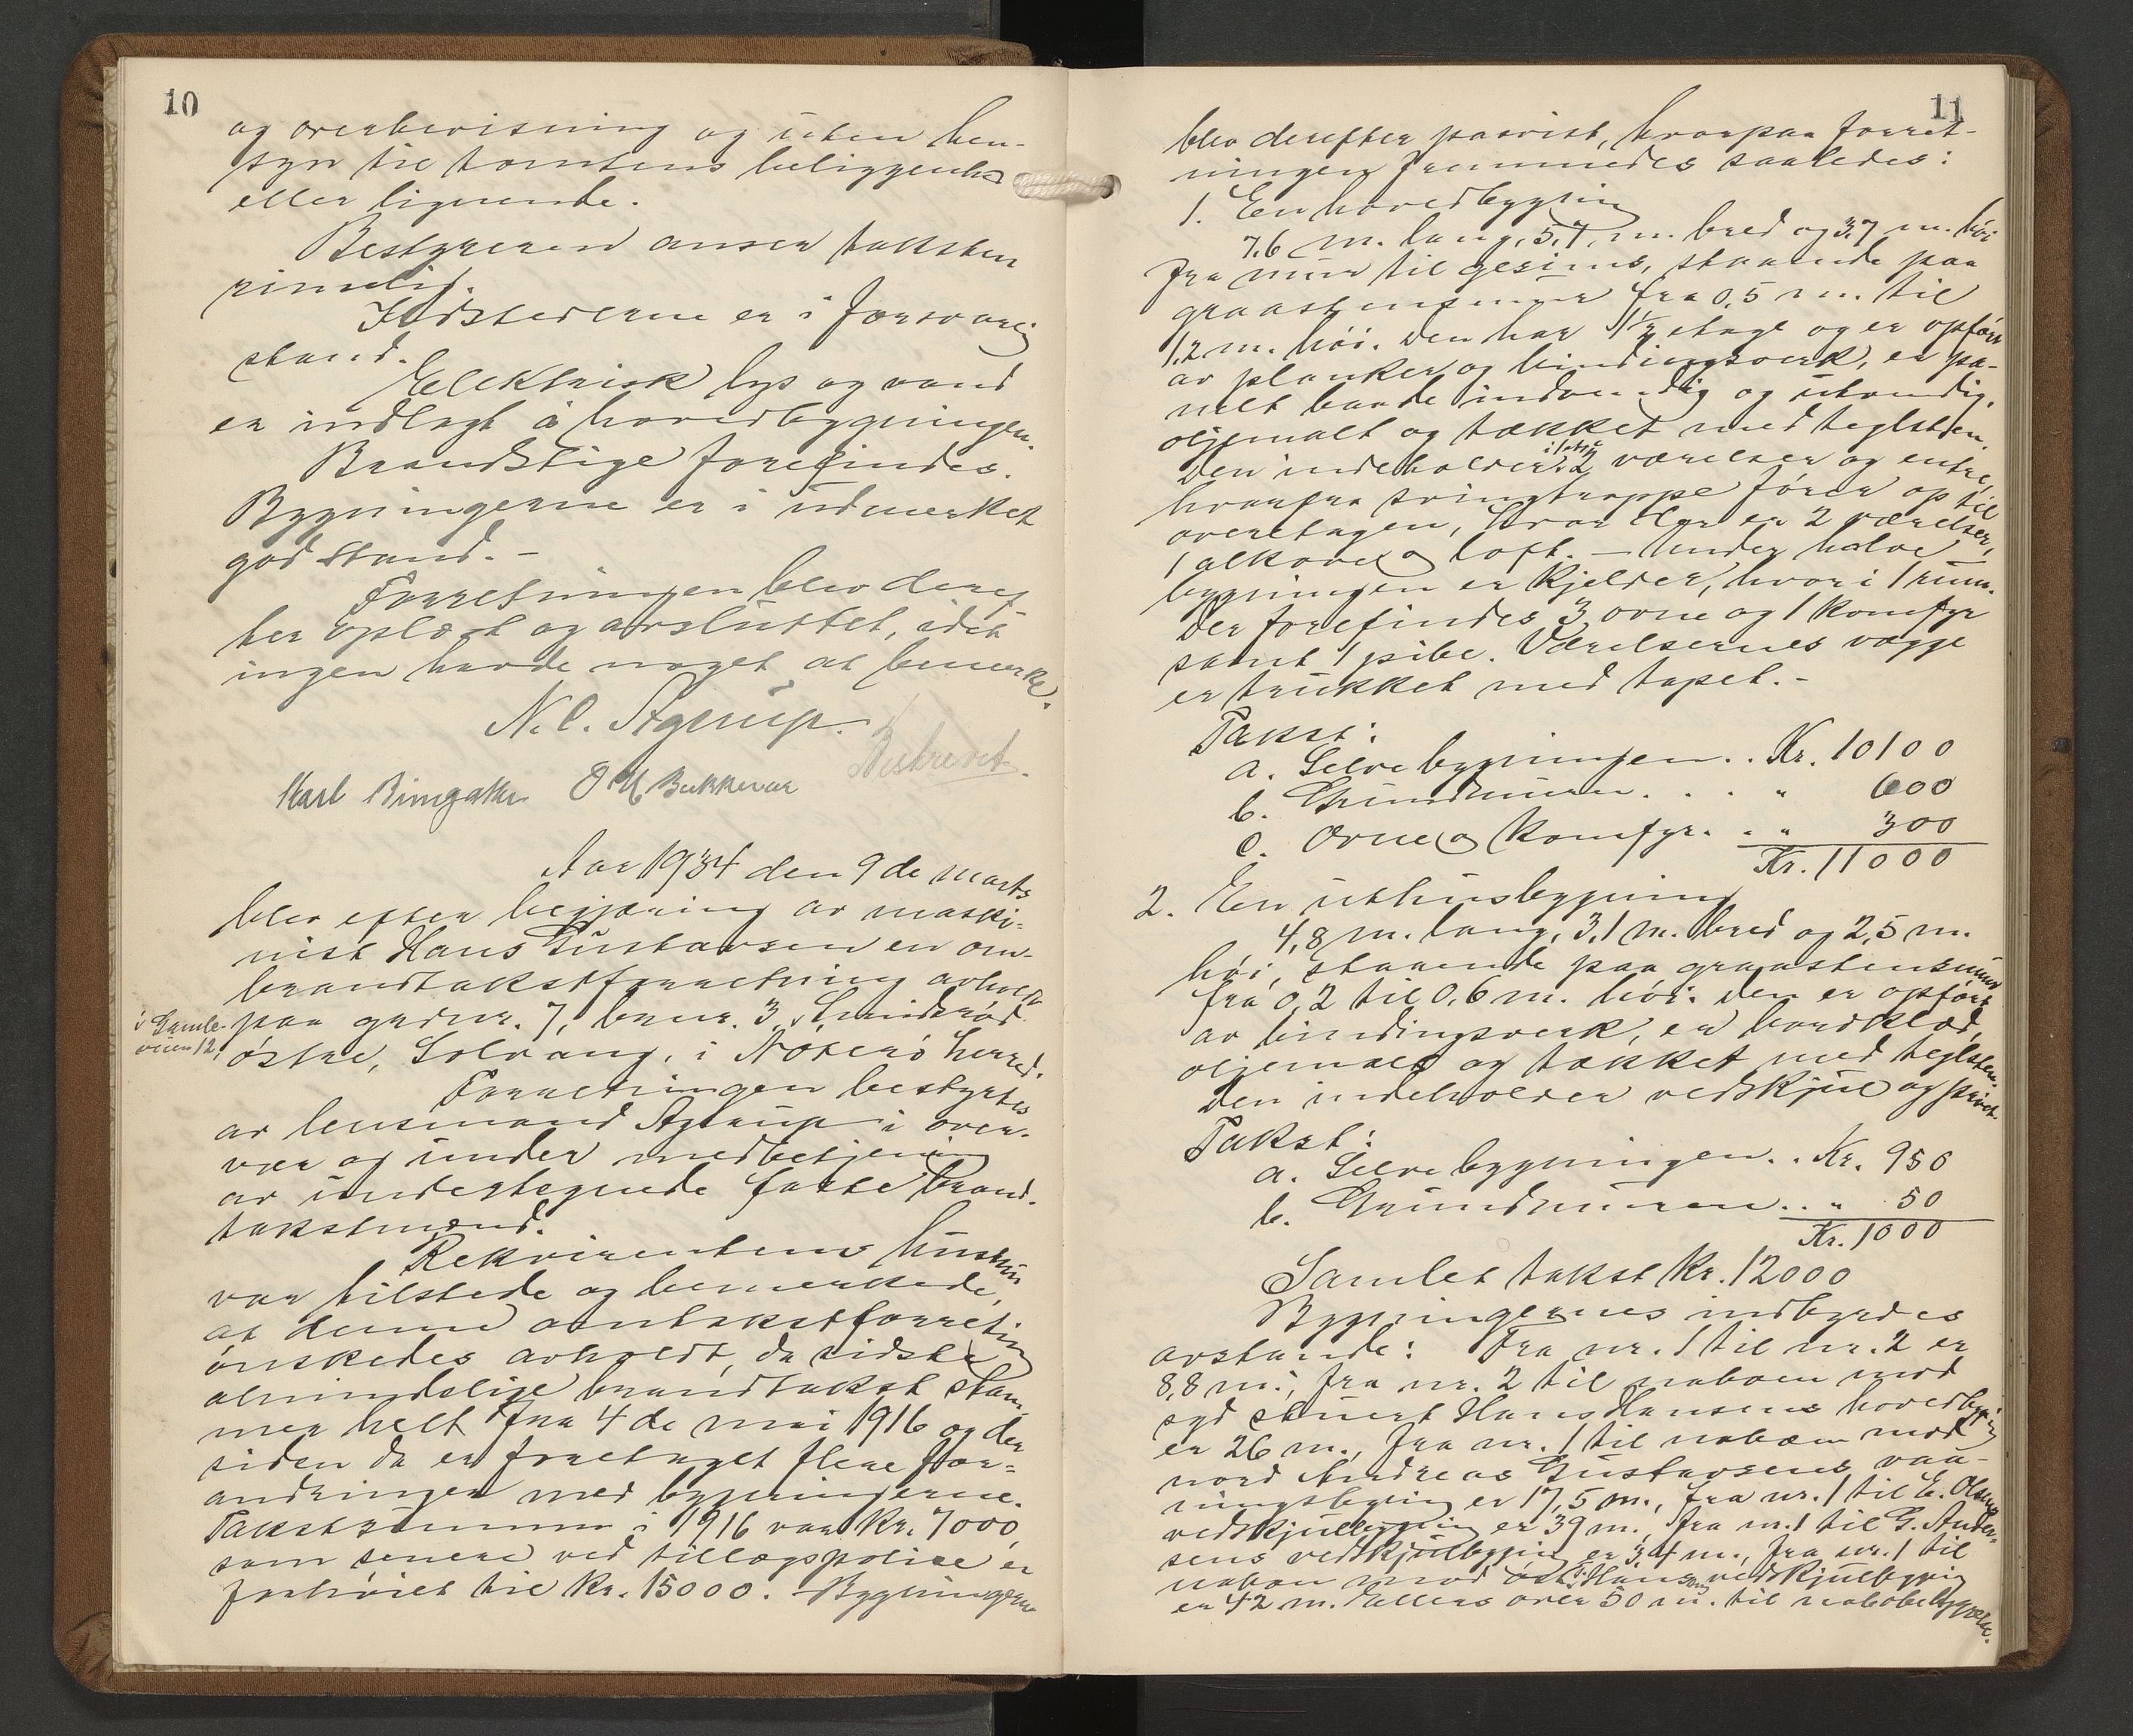 10
og overbevisning og uten hen-
syn til tomtens beliggenhet
eller lignende.
Bestyreren anser taksten
rimelig.
Ildstederne er i forsvarlig
stand.
Elektrisk lys og vand
er indlagt i hovedbygningen.
Brandstige forefindes.
Bygningerne er i udmerket
god stand. -
Forretningen blev deref-
ter oplæst og avsluttet, idet
ingen havde noget at bemerke.
N. C. Agerup.
Beskrevet.
Karl O M Bekkevar
Aar 1934 den 9de marts
blev efter begjæring av maski-
nist Hans Gustavsen en om-
brandtakstforretning avholdt
paa gadnr. 7, bnr. 3, Smidsrød
i Gamle-
veien 12,
østre, Solvang, i Nøterø herred.
Forretningen bestyrtes
av lensmand Agerup i over-
vær og under medbetjening
av undertegnede faste brand-
takstmænd.
Rekvirentens hustru
var tilstede og bemerkede,
at denne omtakstforretning
ønskedes avholdt, da sidste
almindelige brandtakst stam-
mer helt fra 4de mai 1916 og der
siden da er foretaget flere for-
andringer med bygningerne.
Takstsummen i 1916 var kr. 7000,
som senere ved tillægspolise er
forhøiet til kr. 15000. - Bygningerne
11
blev derefter paavist, hvorpaa forret-
ningen fremmedes saaledes:
1. En hovedbygning
7,6 m. lang, 5,7 m. bred og 3,7 m. høi
fra mur til gesims, staaende paa
graastensmur fra 0,5 m. til
1,2 m. høi. Den har 1½ etage og er opført
av planker og bindingsverk, er pa-
nelt baade indvendig og utvendig,
oljemalt og tækket med teglsten.
Den indeholder i 1 etg. 2 værelser og entre,
hvorfra svingtrappe fører op til
overetagen, hvor der er 2 værelser,
1 alkove og loft. - Under halve
bygningen er kjelder, hvori 1 rum.
Der forefindes 3 ovne og 1 komfyr
samt 1 pibe. Værelsernes vægge
er trukket med tapet. -
Takst:
a. Selve bygningen .. Kr. 10100
b. Grundmuren . . . " 600
c. Ovne og komfyr . . " 300
Kr. 11000
2. En uthusbygning
4,8 m. lang, 3,1 m. bred og 2,5 m.
høi, staaende paa graastensmur
fra 0,2 til 0,6 m. høi. Den er opført
av bindingsverk, er bordklæd,
oljemalt og tækket med teglsten.
Den indeholder vedskjul og privet.
Takst:
a. Selve bygningen .. Kr. 950
b. Grundmuren .. " 50
Kr. 1000
Samlet takst kr. 12000
Bygningernes indbyrdes
avstande: Fra nr. 1 til nr. 2 er
8,8 m., fra nr. 2 til naboen mod
syd Hans Hansens hovedbygning
er 26 m., fra nr. 1 til naboen mod
nord Andreas Gustavsens vaa-
ningsbygning er 17,5 m., fra nr. 1 til E. Olsens
vedskjulbygning er 39 m., fra nr. 1 til G. Ander-
sens vedskjulbygning er 34 m., fra nr. 1 til
naboen mod øst vedskjulbygning
er 42 m. Ellers over 50 m. til nabobebyggelse.